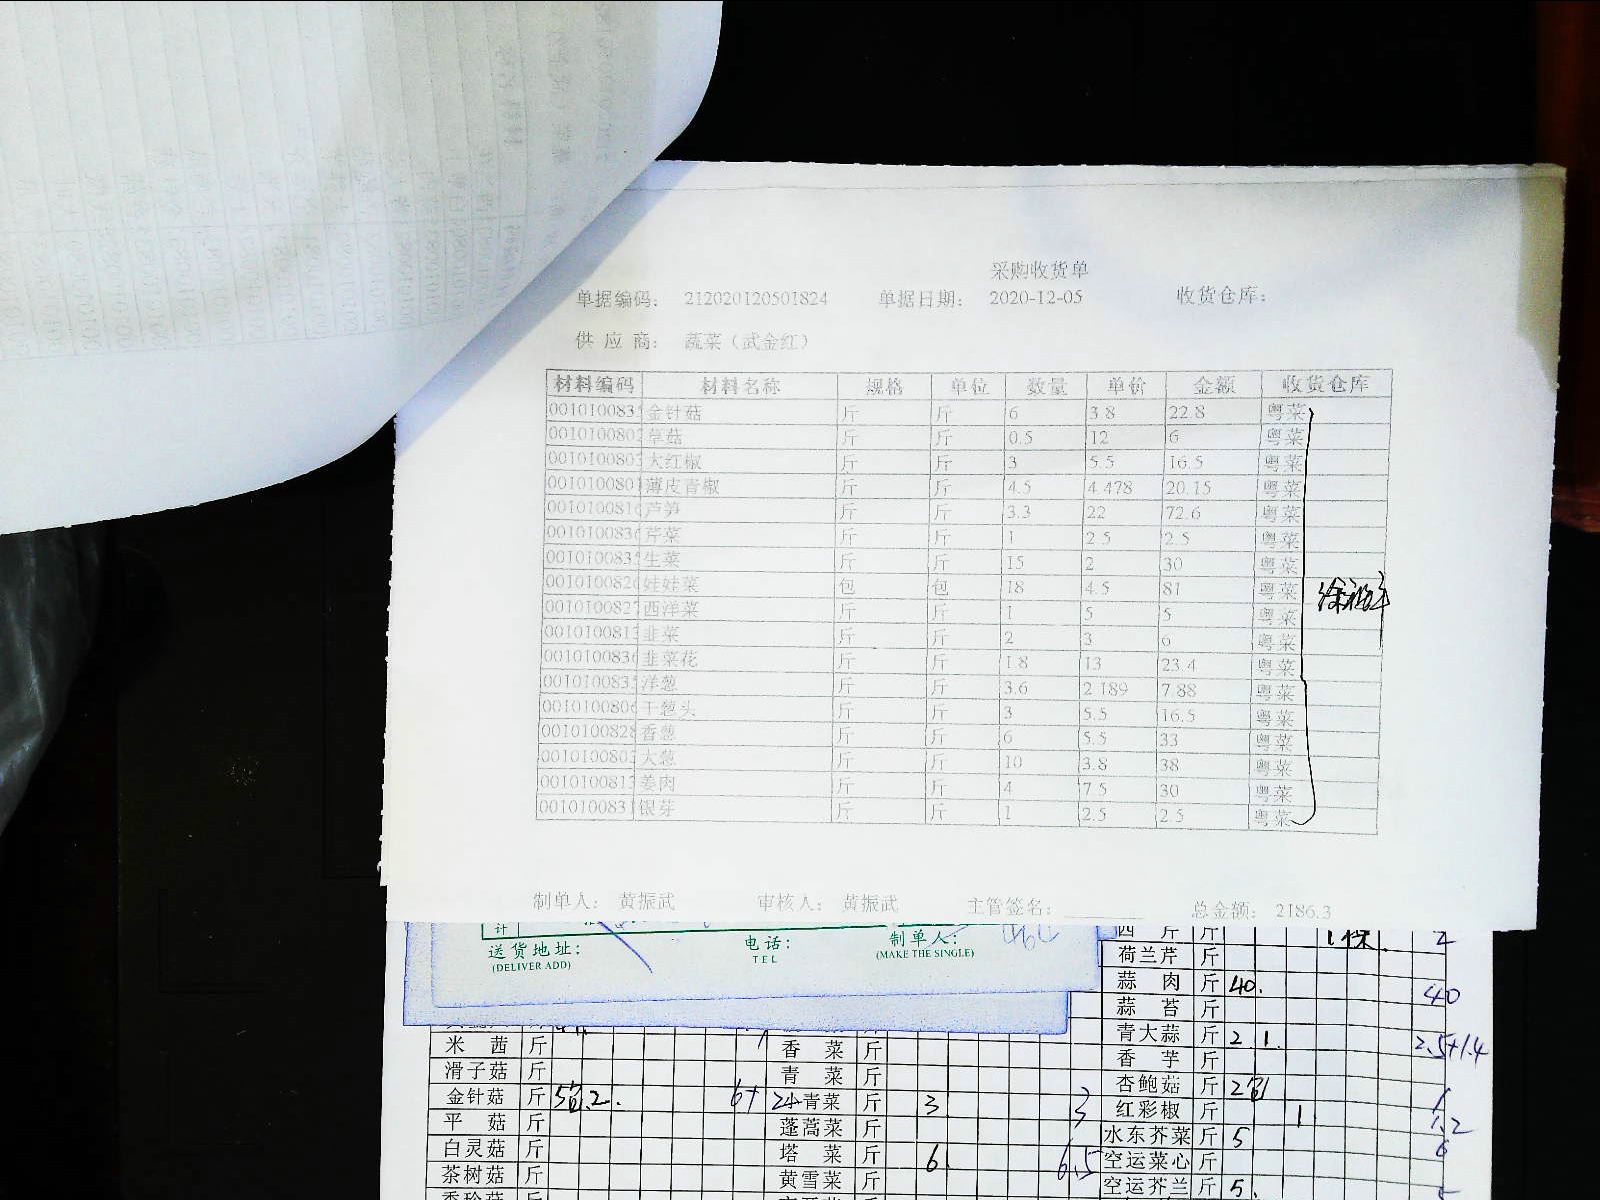 采购收货单
单据编码： 212020120501824 单据日期： 2020-12-05 收货仓库：
供 应 商： 蔬菜（武金红）
材料编码 材料名称 规格 单位 数量 单价 金额 收货仓库
0010100835 金针菇 斤 斤 6 3.8 22.8 粤菜
0010100802 草菇 斤 斤 0.5 12 6 粤菜
0010100803 大红椒 斤 斤 3 5.5 16.5 粤菜
0010100801 薄皮青椒 斤 斤 4.5 4.478 20.15 粤菜
0010100816 芦笋 斤 斤 3.3 22 72.6 粤菜
0010100836 芹菜 斤 斤 1 2.5 2.5 粤菜
0010100835 生菜 斤 斤 15 2 30 粤菜
0010100826 娃娃菜 包 包 18 4.5 81 粤菜
0010100827 西洋菜 斤 斤 1 5 5 粤菜
0010100813 韭菜 斤 斤 2 3 6 粤菜
0010100836 韭菜花 斤 斤 1.8 13 23.4 粤菜
0010100835 洋葱 斤 斤 3.6 2.189 7.88 粤菜
0010100806 干葱头 斤 斤 3 5.5 16.5 粤菜
0010100828 香葱 斤 斤 6 5.5 33 粤菜
0010100802 大葱 斤 斤 10 3.8 38 粤菜
0010100813 姜肉 斤 斤 4 7.5 30 粤菜
0010100831 银芽 斤 斤 1 2.5 2.5 粤菜
制单人： 黄振武 审核人： 黄振武 主管签名： 总金额： 2186.3
计
送货地址： 电话： 制单人：
(DELIVER ADD) TEL (MAKE THE SINGLE)
西 芹 斤 1棵. 2
荷兰芹 斤
蒜 肉 斤 40. 40
蒜 苔 斤
青大蒜 斤 2.1. 2.5+1.4
米 茜 斤 香 菜 斤 香 芋 斤
滑子菇 斤 青 菜 斤 杏鲍菇 斤 2包 1
金针菇 斤 5包.2. 6+ 小青菜 斤 3 3 红彩椒 斤 1 1.2
平 菇 斤 蓬蒿菜 斤 水东芥菜 斤 5 6
白灵菇 斤 塔 菜 斤 6. 6.5 空运菜心 斤
茶树菇 斤 黄雪菜 斤 空运芥兰 斤 5.